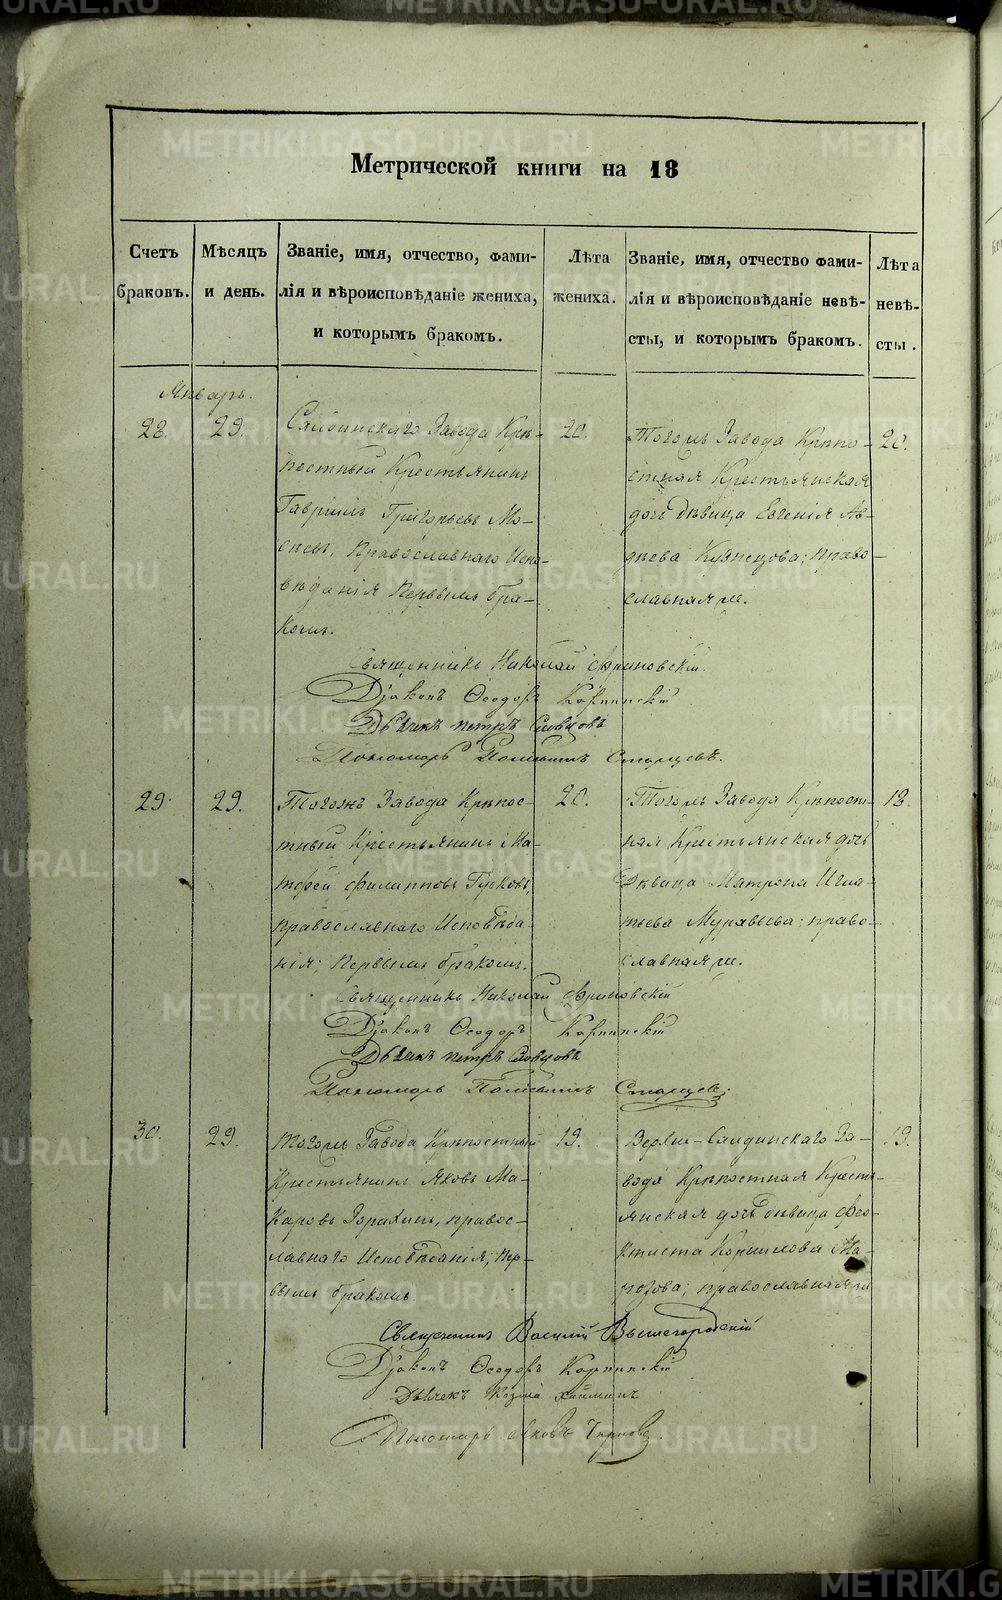 Метрической книги на 18
Счетъ браковъ.
Мѣсяцъ и день.
Званіе, имя, отчество, фами-
лія и вѣроисповѣданіе жениха,
и которымъ бракомъ.
Лѣта
жениха.
Званіе, имя, отчество фами-
лія и вѣроисповѣданіе невѣ-
сты, и которымъ бракомъ.
Лѣта
невѣ-
сты.
Январь.
28. 29.
Салдинскаго Завода Крѣ-
постный Крестьянинъ
Гавріилъ Григорьевъ Мо-
сѣевъ, Православнаго Испо-
вѣданія Первымъ бра-
комъ.
20.
Тогожъ Завода Крѣпо-
стная Крестьянская
дочь дѣвица Евгенія Ав-
дѣева Кузнецова; право-
славная же.
20.
Священникъ Николай
Діаконъ Ѳеодоръ Карпинскій
Дьячекъ Петръ Словцовъ
Пономарь Старцевъ.
29. 29.
Тогожъ Завода Крѣпос-
тный Крестьянинъ Ма-
тфей Филипповъ Гусковъ,
православнаго Исповѣда-
нія; Первымъ бракомъ.
20.
Тогожъ Завода Крѣпост-
ная Крестьянская дочь
Дѣвица Матрона Игна-
тьева Муравьева; право-
славная же.
18.
Священникъ Николай
Діаконъ Ѳеодоръ Карпинскій
Дьячекъ Петръ Словцовъ
Пономарь Старцевъ.
30. 29.
Тогожъ Завода Крѣпостный
Крестьянинъ Яковъ Ма-
каровъ Зорихинъ, правос-
лавнаго Исповѣданія; пер-
вымъ бракомъ.
19.
Верхне-Салдинскаго За-
вода Крѣпостная Кресть-
янская дочь дѣвица Ѳео-
ктиста Корнилова На-
розова; православная же
19.
Священникъ Василій Вышегородскій
Діаконъ Ѳеодоръ Карпинскій
Дьячекъ Козма
Пономарь Яковъ
METRIKI.GASO-URAL.RU